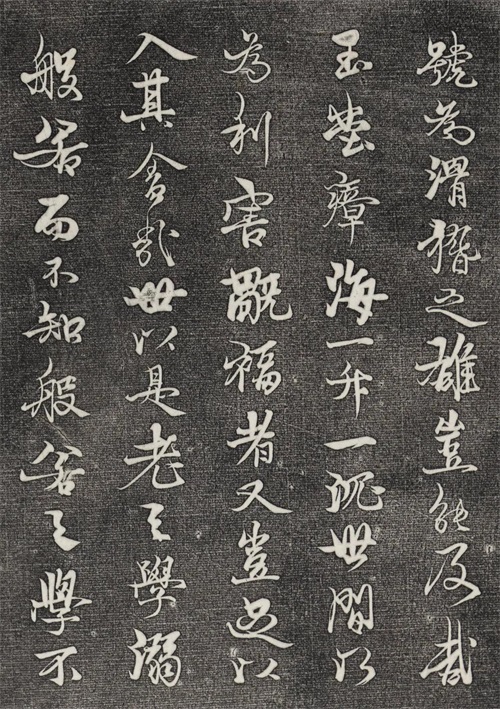 號為滑稽之雄豈能及哉
玉堂瘴海一升一沉世間以
為利害旤福者又豈足以
入其舍哉世以是老之學溺
般若而不知般若之學不